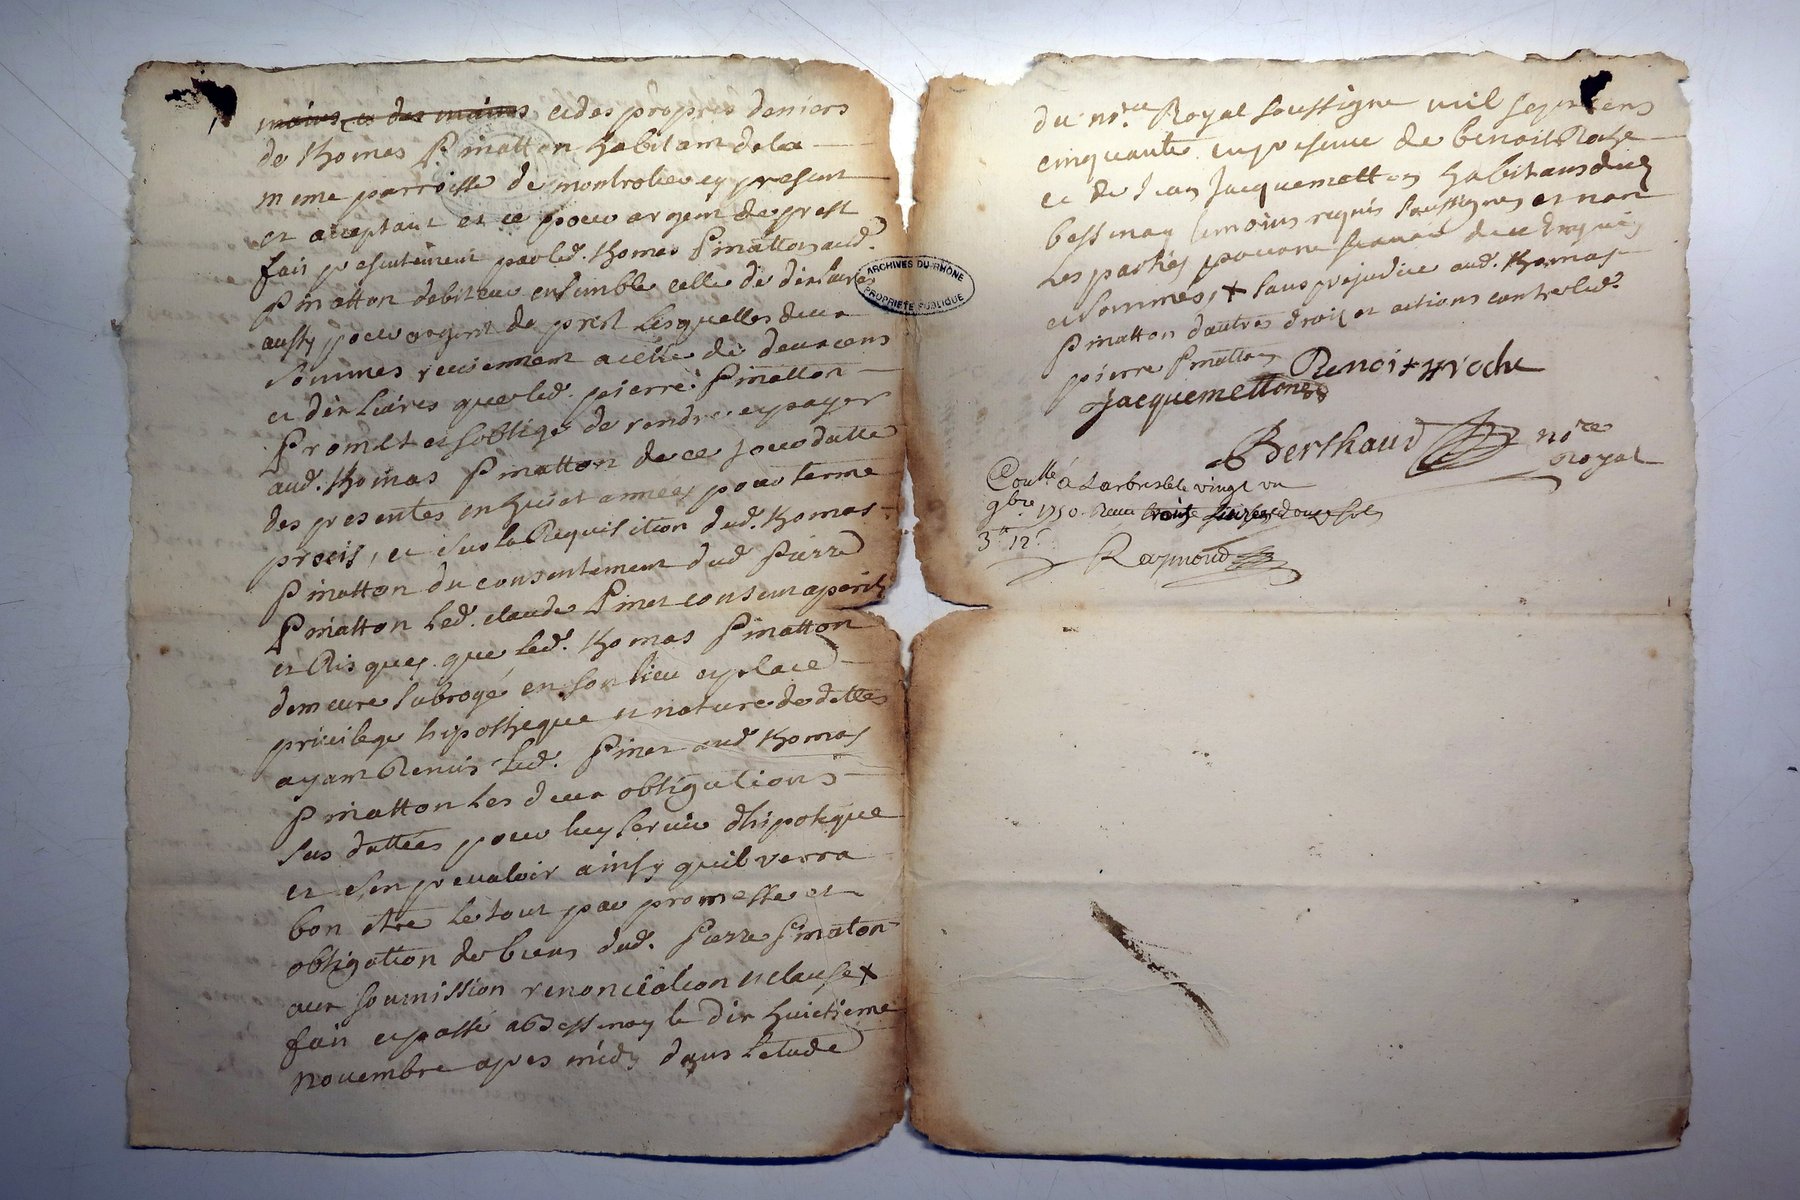 mains et des mains et des propres deniers
de Thomas Pinatton habitant de la
meme parroisse de montrotier cy present
et acceptant et ce pour argent de prest
fait presentement par led. Thomas Pinatton aud.
Pinatton debiteur ensemble celle de dix livres
aussy pour argent de prest lesquelles deux
sommes reviennent a celle de deux cens
et dix livres que led. pierre Pinatton
Promet et soblige de rendre et payer
aud. Thomas Pinatton de ce jour datte
des presentes en huict annees pour terme
precis, et sur la Requisition dud. Thomas
Pinatton du consentement dud. Pierre
Pinatton led. claude Pinet consent a perils
et Risques que led. Thomas Pinatton
demeure subrogé en son lieu et place
privilege hipotheque et nature de dettes
ayant Remis led. Pinet aud. Thomas
Pinatton les deux obligations
sus dattées pour luy servir dhipoteque
et sen prevaloir ainsy quil verra
bon etre le tout par promesse et
obligation de biens dud. Pierre Pinaton
aux soumission renonciation et clause x
fait et passé a Bessenay le dix huictieme
novembre apres midy dans letude
du nore. Royal soussigné mil sept cens
cinquante en presence de benoist Roche
et de Jean Jacquemetton habitans dud.
bessenay temoins requis soussignes et non
les parties pour ne scavoir de ce enquis
et sommés, x sans prejudice aud. Thomas
Pinatton dautres droits et actions contre led.
pierre Pinatton
Benoit Roche
Jacquemetton
Berthaud nore
royal
Con.lé á Larbresle le vingt un
9bre 1750. Reçu trois livres douze sols
3# 12s
Raymond
ARCHIVES DU RHÔNE
PROPRIÉTÉ PUBLIQUE